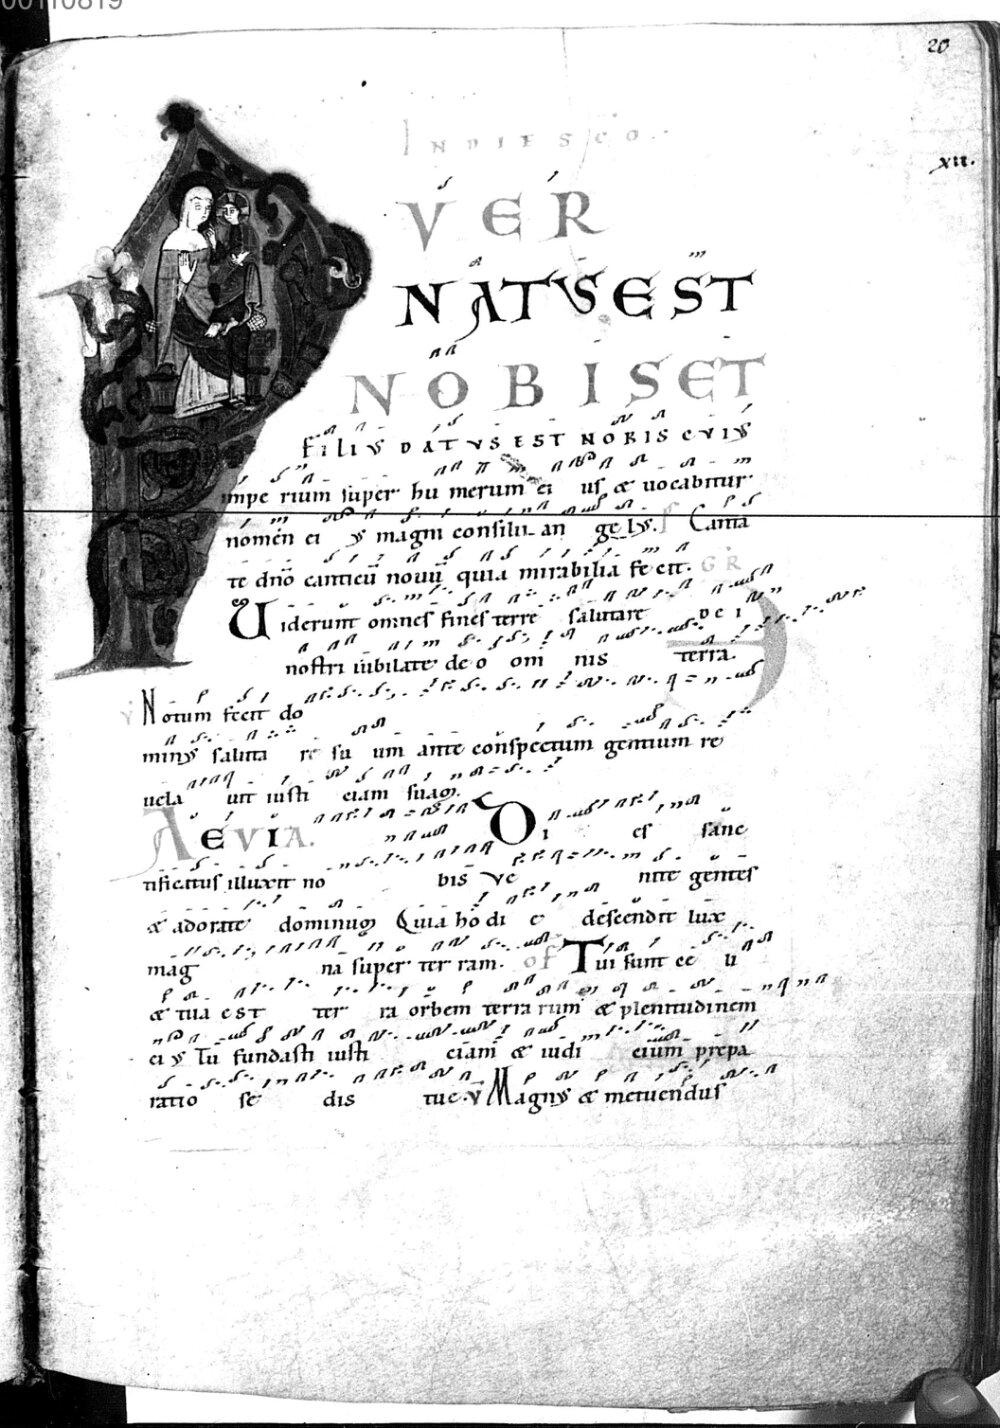 00110819
20
IN DIE SCO
xii.
P VER
NATVS EST
NOBIS ET
FILIVS DATVS EST NOBIS CVIVS
impe rium super hu merum ei us & uocabitur
nomen ei us magni consilii an ge lus. Canta
te dnō canticū nouū quia mirabilia fecit. GR
Viderunt omnes fines terre salutare DEI
nostri iubilate deo om nis terra.
V Notum fecit do
minus saluta re su um ante conspectum gentium re
uela uit iusti ciam suam.
AEVIA. Di es sanc
tificatus illuxit no bis Ve nite gentes
& adorate dominum Quia hodi e descendit lux
mag na super ter ram. of Tui sunt ce li
& tua est ter ra orbem terrarum & plenitudinem
ei us tu fundasti iusti ciam & iudi cium prepa
ratio se dis tue. V Magnus & metuendus